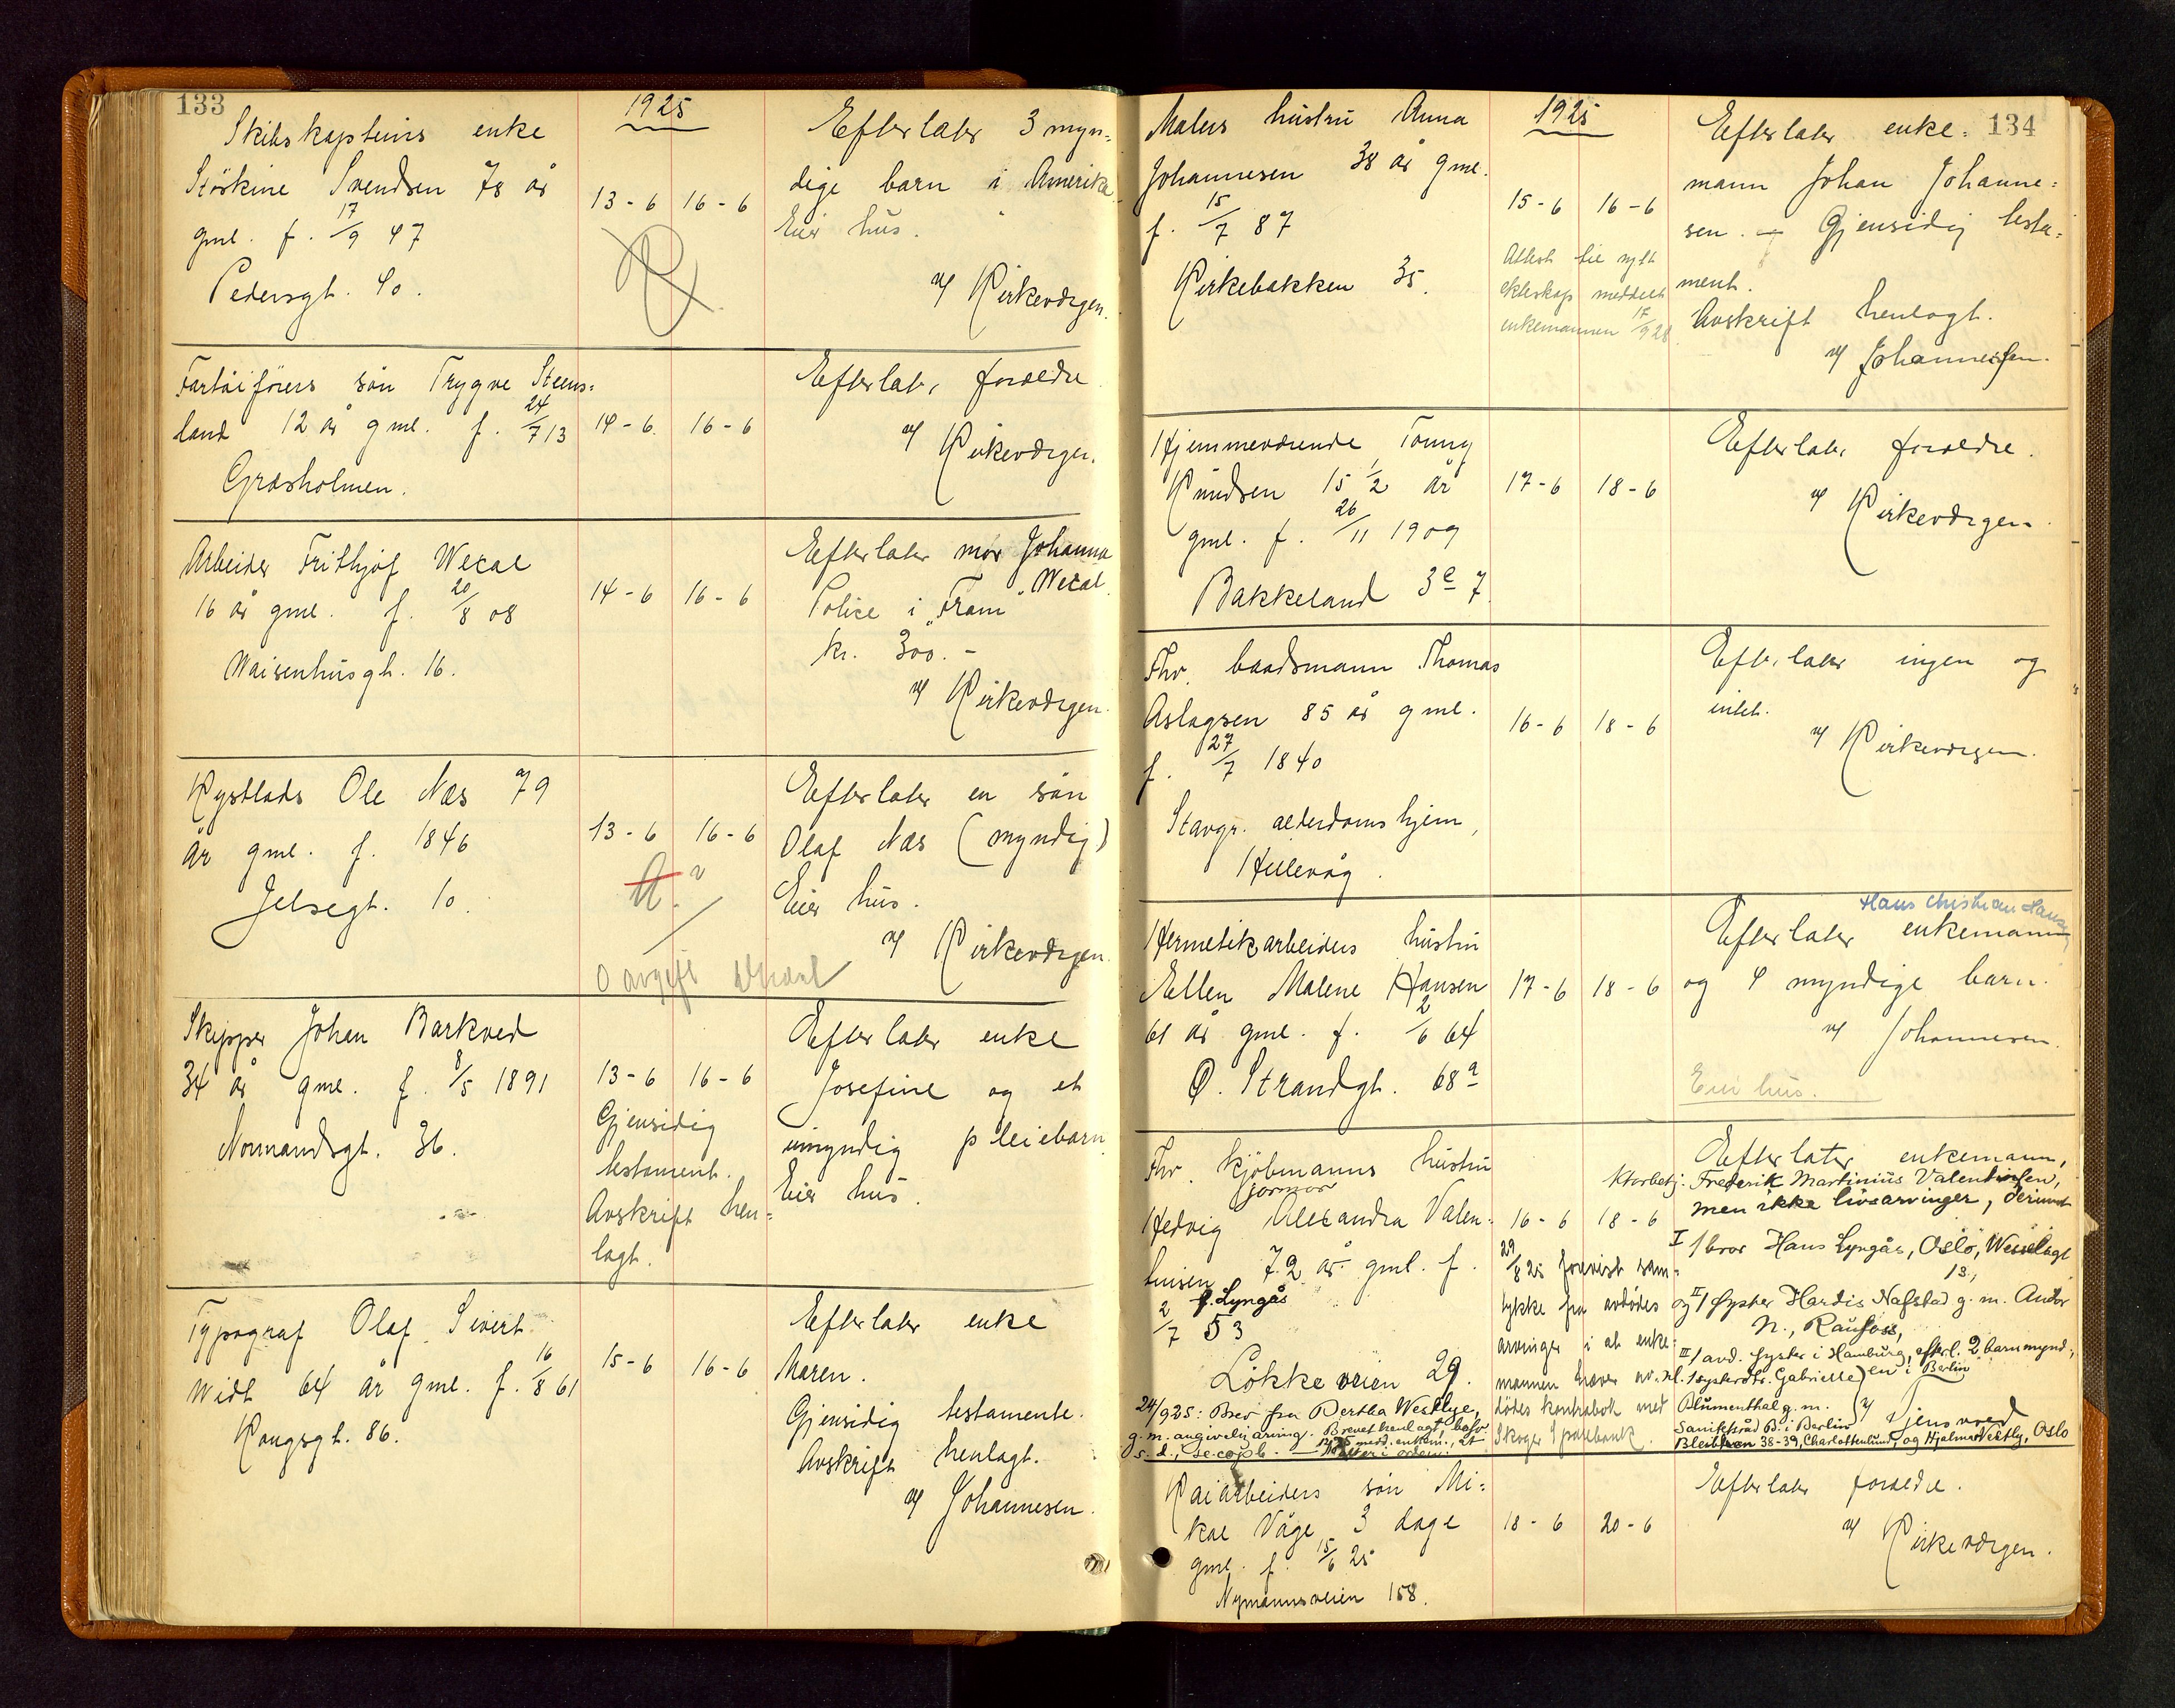 133
1925
Skibskapteins enke
Störkine Svendsen 78 år
gml. f. 17/9 47
Pedersgt. 40.
13-6 16-6
Efterlater 3 myn=
dige barn i Amerika.
Eier hus.
v/ Kirkeværgen.
Fartöiförers sön Trygve Steens=
land 12 år gml. f. 24/7 13
Græsholmen.
14-6. 16-6
Efterlat. foreldre
v/ Kirkeværgen.
Arbeider Frithjof Wecal
16 år gml. f. 20/8 08
Waisenhusgt. 16.
14-6 16-6
Efterlater mor Johanna
Wecal.
Police i "Fram"
kr. 300.-
v/ Kirkeværgen.
Kystlods Ole Næs 79
år gml. f. 1846
Jelsegt. 10.
13-6 16-6
0 avgift
Efterlater en sön
Olaf Næs (myndig)
Eier hus.
v/ Kirkeværgen.
Skipper Johan Barkved
34 år gml. f. 8/5 1891
Normandsgt. 36.
13-6 16-6
Gjensidig
testament.
Avskrift hen=
lagt.
Efterlater enke
Josefine og et
umyndig pleiebarn.
Eier hus.
Typograf Olaf Sivert
Widt 64 år gml. f. 16/8 61
Kongsgt. 86.
15-6 16-6
Efterlater enke
Maren.
Gjensidig testamente.
Avskrift henlagt.
v/ Johannesen.
134
1925
Malers hustru Anna
Johannesen 38 år gml.
f. 15/7 87
Kirkebakken 35.
15-6 16-6
Attest til nytt
ekteskap meddelt
enkemannen 17/9 28
Efterlater enke=
mann Johan Johanne=
sen. - Gjensidig testa=
ment.
Avskrift henlagt.
v/ Johannesen.
Hjemmeværende Tonny
Knudsen 15 1/2 år
gml. f. 26/11 1909
Bakkeland 3e 7.
17-6 18-6
Efterlat. foreldre.
v/ Kirkeværgen.
Fhv. baadsmann Thomas
Aslagsen 85 år gml.
f. 27/7 1840
Stavgr. alderdomshjem,
Hillevåg.
16-6 18-6
Eft.later ingen og
intet.
v/ Kirkeværgen.
Hermetikarbeiders hustru
Ellen Malene Hansen
61 år gml. f. 2/6 64
Ø. Strandgt. 68a
17-6 18-6
Hans Christian Hansen,
Efterlater enkemann
og 4 myndige barn.
v/ Johannesen.
Eier hus.
Fhv. kjöbmanns hustru
jormor
Hedvig Alexandra Valen=
tinsen 72 år gml. f.
f. Lyngås
2/7 53
Lökkeveien 29.
24/9 25: Brev fra Bertha Westlye,
g.m. angivelig arving. Brevet henlagt, besv.
s.d., se copb.
16-6 18-6
29/8 25 forevist sam=
tykke fra avdödes
arvinger i at enke=
mannen hæver av=
dödes kontrabok med
Skoger Sparebank.
Efterlater enkemann,
Ktorbetj. Frederik Martinius Valentinsen,
men ikke livsarvinger, derimot
I/ bror Hans Lyngås, Oslo, Wesselsgt
13,
og II/ syster Hardis Nafstad g.m. Andor
N., Raufoss,
III/ avd. syster i Hamburg, efterl. 2 barn mynd.,
nl. 1 systerdtr. Gabrielle) en i Berlin
Blumenthal g.m.
Sanitetsråd B. i Berlin
v/ Tjensvoed
Bleibtreu 38-39, Charlottenlund, og Hjalmar Vestly, Oslo
Kaiarbeiders sön Mi=
kal Våge 3 dage
gml. f. 15/6 25
Nymannsveien 158.
18-6 20-6
Efterlater foreldre.
v/ Kirkeværgen.